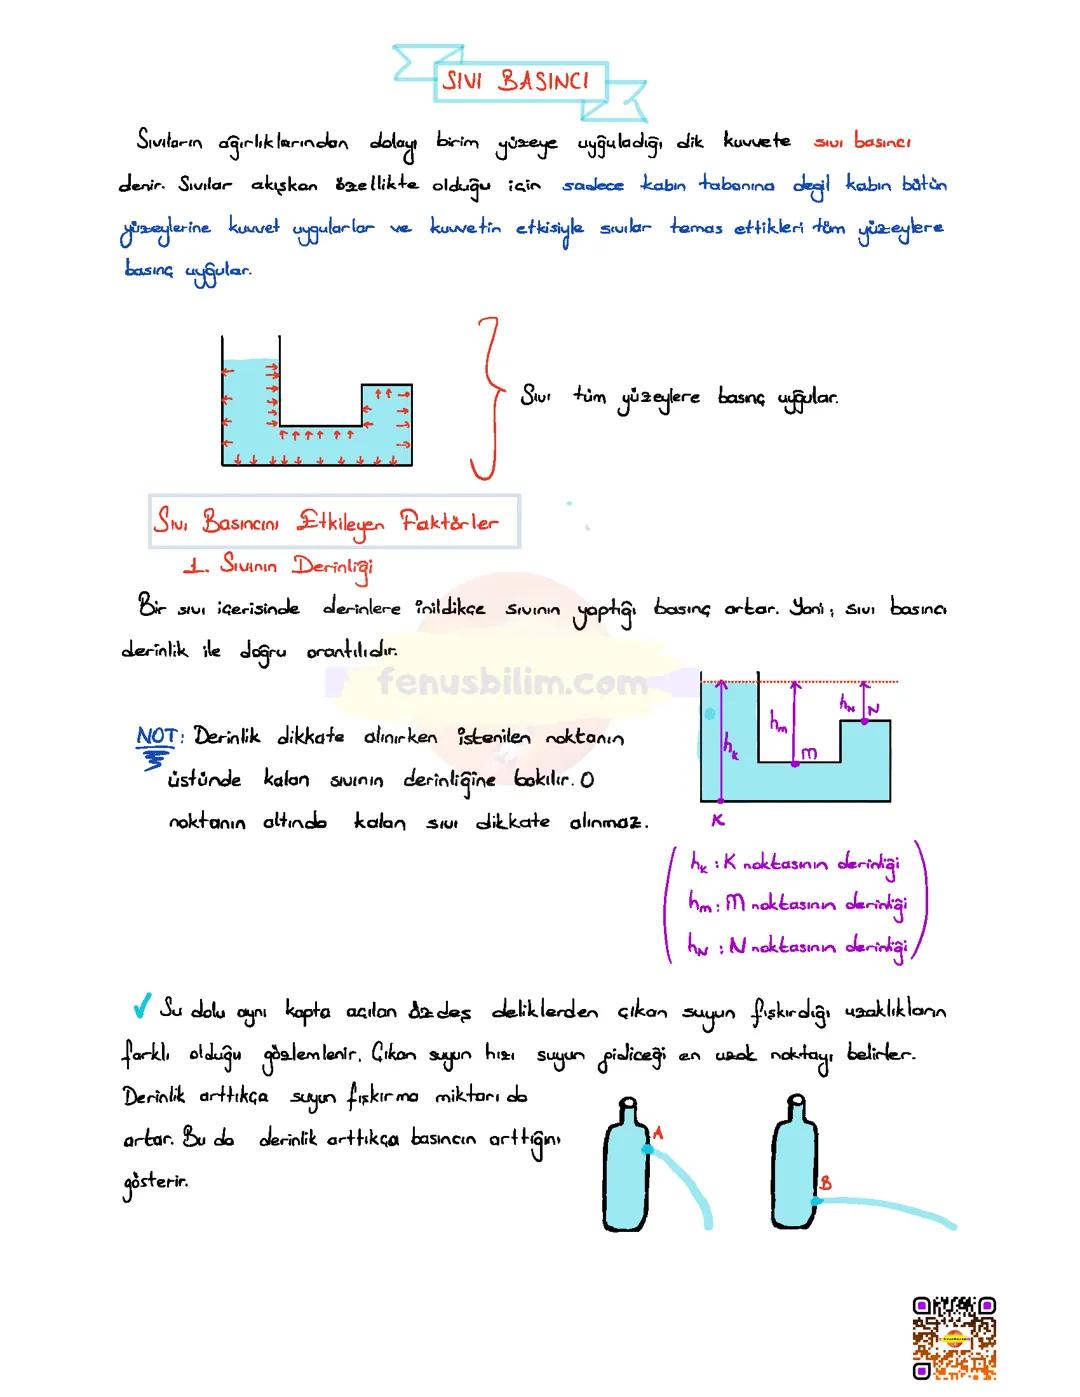 SIVI BASINCI
Sıvıların ağırlıklarından dolayı birim yüzeye uyğuladığı dik kuvvete sıvı basıncı
denir. Sıvılar akışkan özellikte olduğu için sadece kabın tabanına değil kabın bütün
yüzeylerine kuvvet uygularlar ve kuvvetin etkisiyle sıvılar temas ettikleri tüm yüzeylere
basınç uyğular.
Sıvı tüm yüzeylere basınç uyğular.
Sıvı Basıncını Etkileyen Faktörler
1. Sıvının Derinliği
Bir sıvı içerisinde derinlere inildikçe sıvının yaptığı basınç artar. Yani; sıvı basıncı
derinlik ile doğru orantılıdır.
fenusbilim.com
NOT: Derinlik dikkate alınırken istenilen noktanın
üstünde kalan sıvının derinliğine bakılır. O
noktanın altında kalan sıvı dikkate alınmaz.
hN N
hm
hk
m
K
hk : K noktasının derinliği
hm : m noktasının derinliği
hN : N noktasının derinliği
✓ Su dolu aynı kapta açılan özdeş deliklerden çıkan suyun fışkırdığı uzaklıkların
farklı olduğu gözlemlenir. Çıkan suyun hızı suyun gidiceği en uzak noktayı belirler.
Derinlik arttıkça suyun fışkırma miktarı da
artar. Bu da derinlik arttıkça basıncın arttığını
gösterir.
A
B